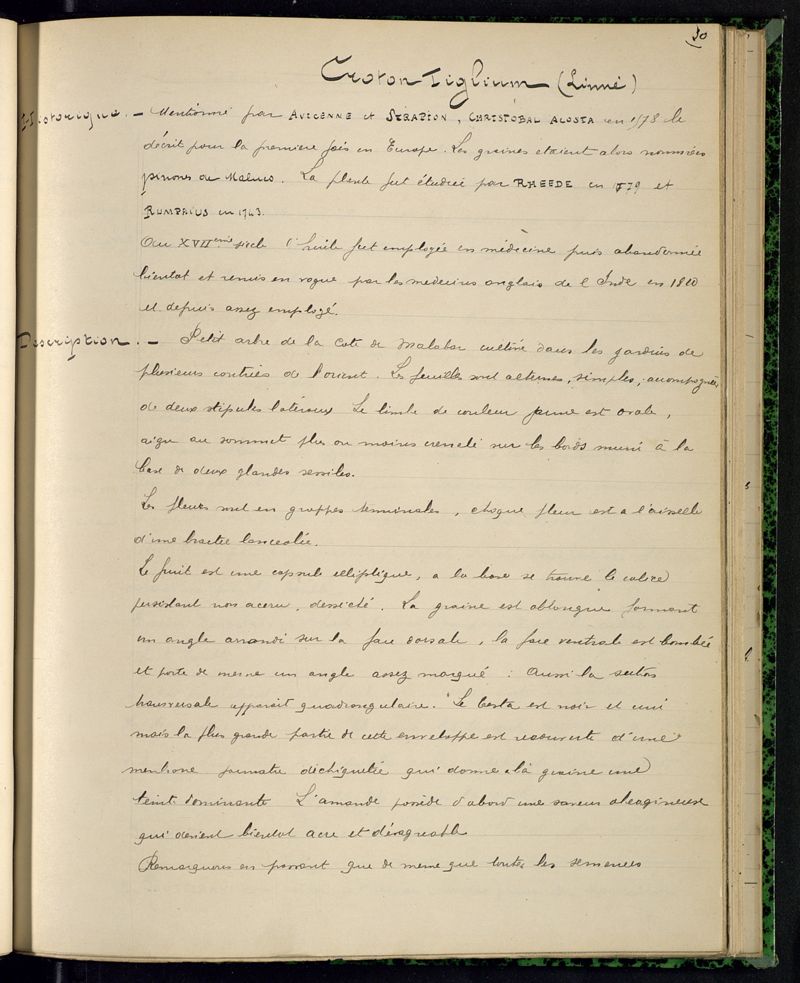 30
Croton Tiglium (Linné)
Historique. — Mentionné par AVICENNE et SÉRAPION, CHRISTOBAL ACOSTA en 1578 le
décrit pour la première fois en Europe. Les graines etaient alors nommées
pinons de Malucs. La plante fut étudiée par RHEEDE en 1779 et
RUMPHIUS en 1743.
Au XVIIeme siècle l'huile fut employée en médecine puis abandonnée
bientot et remis en vogue par les medecins anglais de l'Inde en 1820
et depuis assez employé.
Description. — Petit arbre de la Cote de Malabar cultivé dans les jardins de
plusieurs contrées de l'orient. Les feuilles sont alternes, simples, accompagnées
de deux stipules latéraux Le limbe de couleur jaune est ovale,
aigu au sommet plus ou moins crenelé sur les bords muni à la
base de deux glandes sessiles.
Les fleurs sont en grappes terminales, chaque fleur est a l'aisselle
d'une bractée lanceolée.
Le fruit est une capsule elliptique, a la base se trouve le calice
persistant non accru, desséché. La graine est oblongue formant
un angle arrondi sur la face dorsale, la face ventrale est bombée
et porte de meme un angle assez marqué : Aussi la section
transversale apparait quadrangulaire. Le testa est noir et uni
mais la plus grande partie de cette enveloppe est recouverte d'une
membrane jaunatre déchiquetée qui donne à la graine une
teinte dominante L'amande possède d'abord une saveur oleagineuse
qui devient bientot acre et désagreable
Remarquons en passant que de meme que toutes les semences